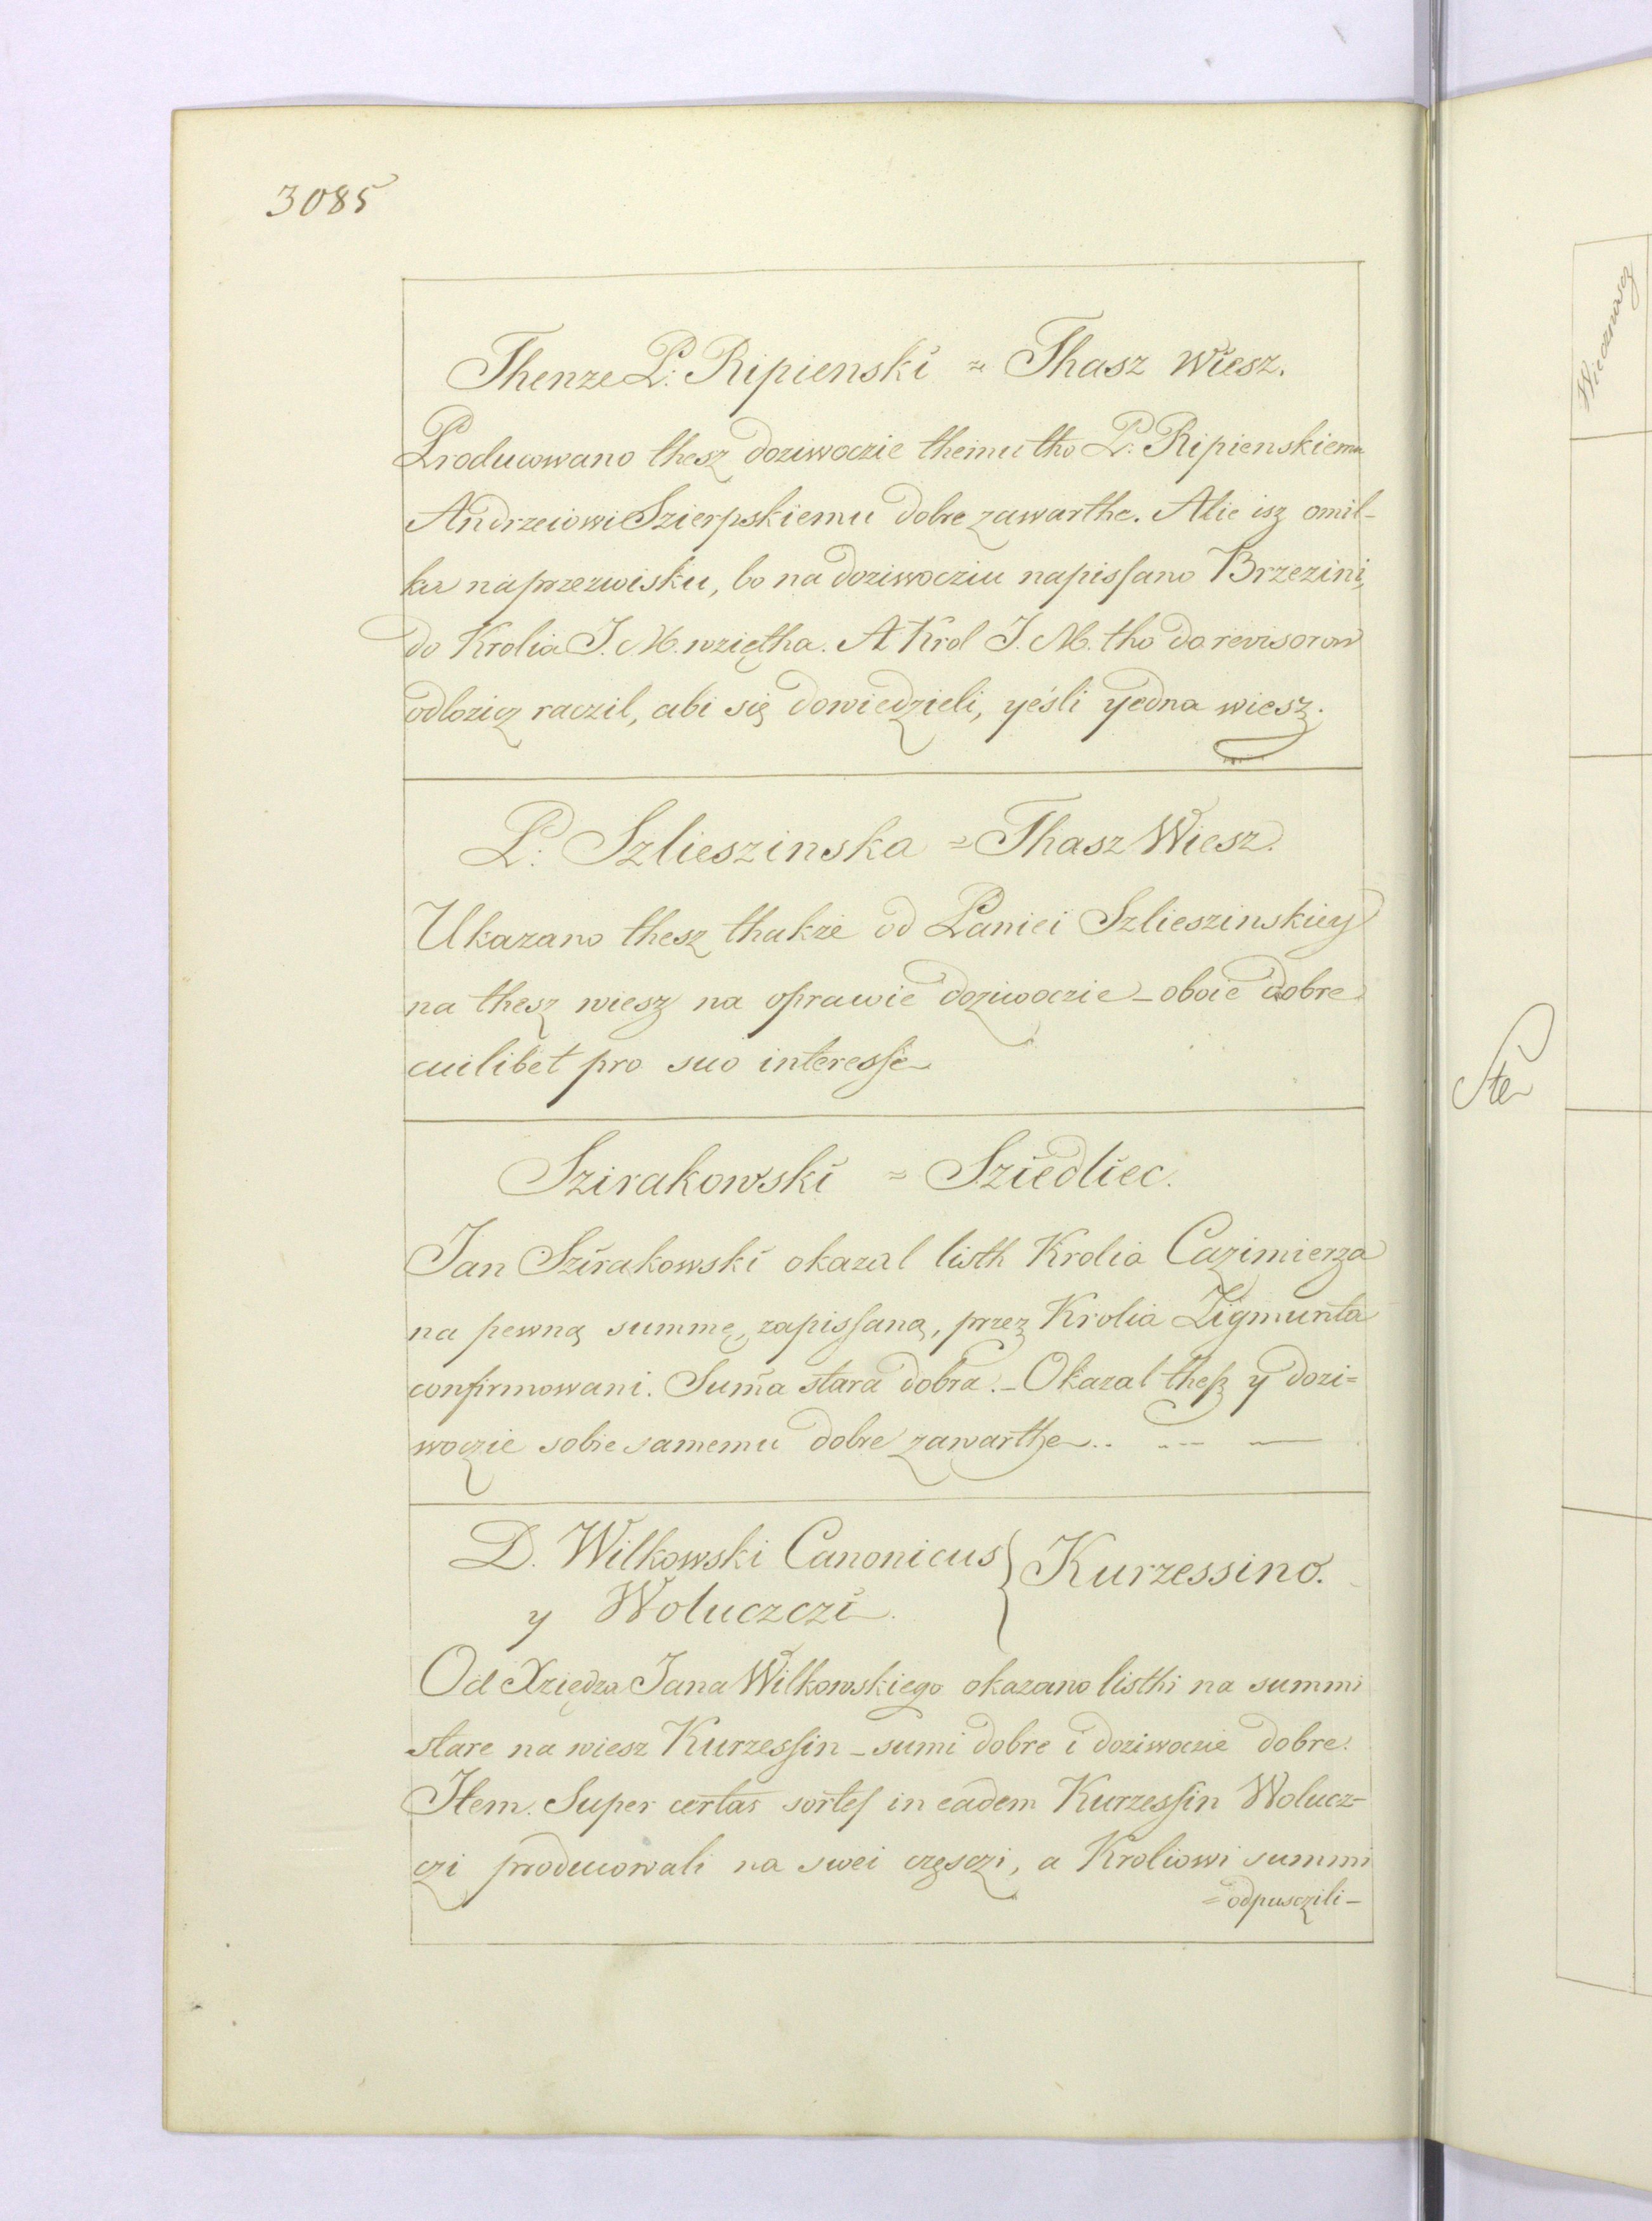 3085
Thenze P: Ripienski = Thasz Wiesz.
Producowano thesz doziwoczie themu tho P: Ripienskiemu
Andrzeiowi Szierpskiemu dobre zawarthe. Alie isz omil-
ka na przezwisku, bo na doziwocziu napisſano Brzezini,
do Krolia J. M. wziętha. A Krol J. M. tho do revisorow
odlozicz raczil, abi się dowiedzieli, yeśli yedna wiesz.
P: Szlieszinska = Thasz Wiesz.
Ukazano thesz thakze od Paniei Szlieszinskiey
na thesz wiesz na oprawie doziwoczie _ oboie dobre
cuilibet pro suo interesſe
Szirakowski = Sziedliec.
Jan Szirakowski okazal listh Krolia Cazimierza
na pewną summę, zapisſaną, przez Krolia Zigmunta
confirmowani. Sum̄a stara dobra. _ Okazal theſz y dozi=
woczie sobie samemu dobre zawarthe..
D. Wilkowski Canonicus } Kurzessino.
y Woluczczi.
Od Xziędza Jana Wilkowskiego okazano listhi na summi
stare na wiesz Kurzesſin _ sumi dobre i doziwoczie dobre.
Item. Super certas sorteſ in eadem Kurzesſin Wolucz-
czi producowali na swei częsczi, a Kroliowi summi
= odpusczili _
Wiecznoscz
Ste